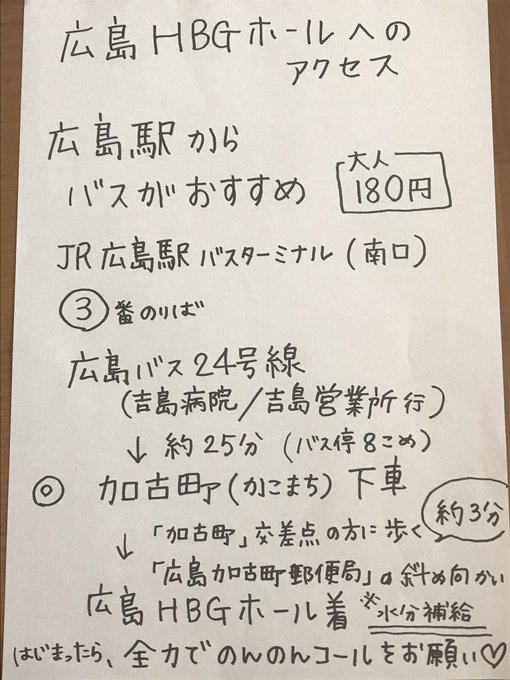 広島HBGホールへの
アクセス
広島駅から
バスがおすすめ
大人
180円
JR広島駅バスターミナル(南口)
③番のりば
広島バス24号線
(吉島病院/吉島営業所行)
↓約25分(バス停8こめ)
◎ 加古町(かこまち)下車
約3分
↓「加古町」交差点の方に歩く
「広島加古町郵便局」の斜め向かい
広島HBGホール着 ※水分補給
はじまったら、全力でのんのんコールをお願い♡